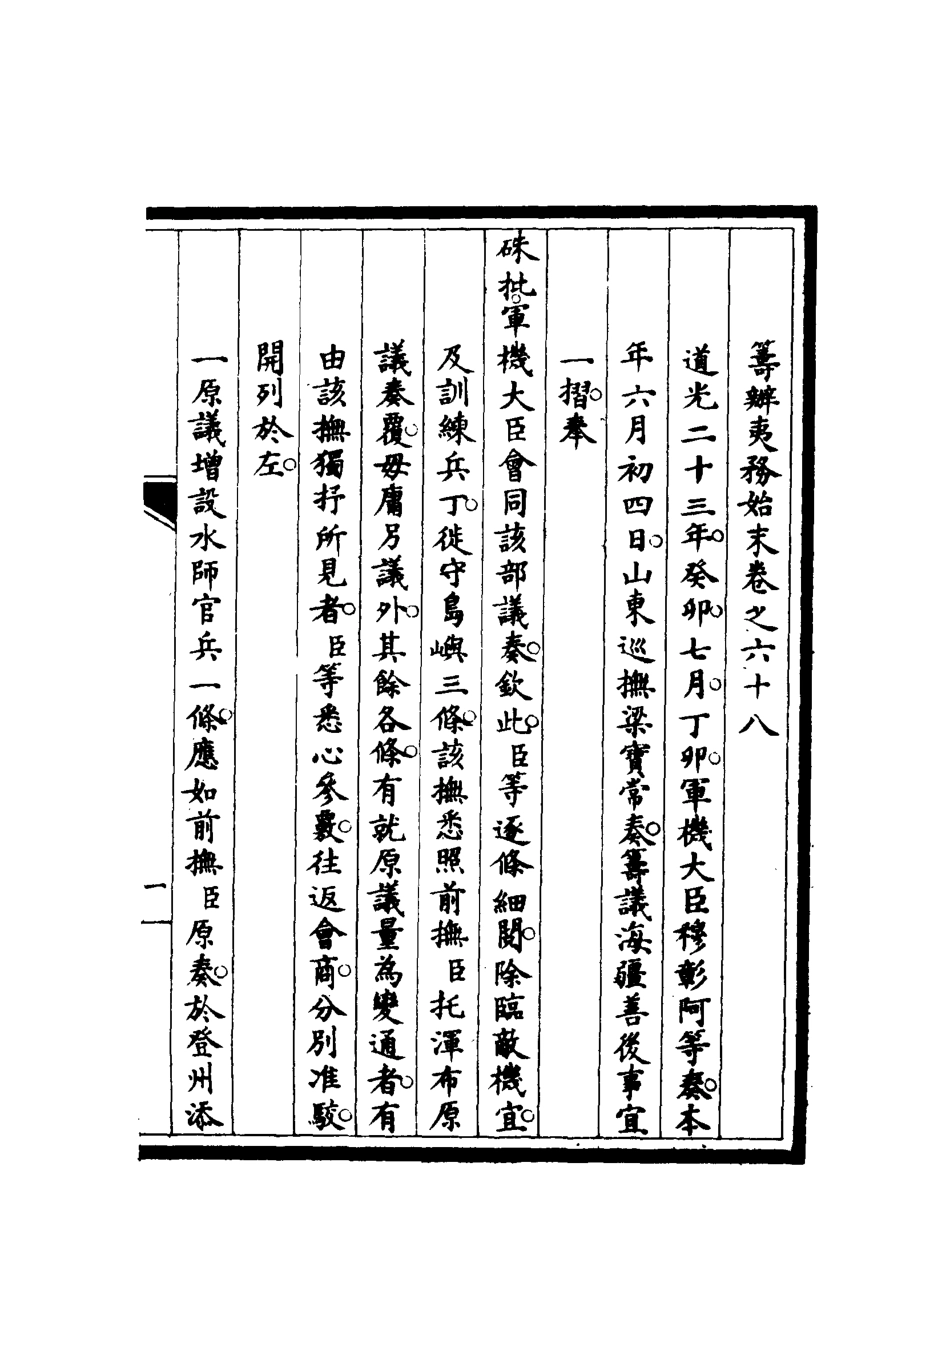 籌辦夷務始末卷之六十八
道光二十三年。癸卯。七月。丁卯。軍機大臣穆彰阿等奏。本
年六月初四日。山東巡撫梁寶常奏。籌議海疆善後事宜
一摺。奉
硃批。軍機大臣會同該部議奏。欽此。臣等逐條細閱。除臨敵機宜。
及訓練兵丁。徙守島嶼三條。該撫悉照前撫臣托渾布原
議奏覆。毋庸另議外。其餘各條。有就原議量為變通者。有
由該撫獨抒所見者。臣等悉心參覈。往返會商。分別准駮。
開列於左。
一原議增設水師官兵一條。應如前撫臣原奏。於登州添
一